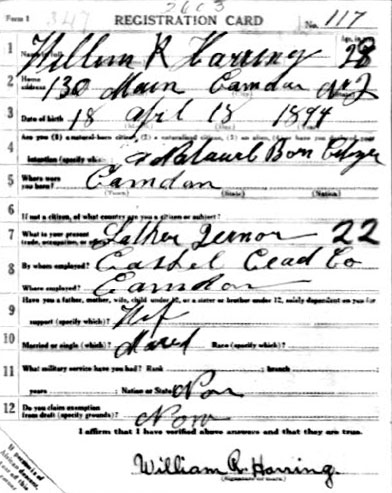 Form 1 347 2603 REGISTRATION CARD No. 117
1 Willem R Harring 28
2 Home address 130 Main Camden NJ
3 Date of birth 18 Apl 18 1894
Are you (1) a natural-born citizen, (2) a naturalized citizen, (3) an alien, (4) or have you declared your
4 intention (specify which)? a Natauel Born Citizen
5 Where were you born? Camdan
(Town) (State) (Nation)
6 If not a citizen, of what country are you a citizen or subject?
7 What is your present trade, occupation, or office? Lather 22
8 By whom employed? Lead Co
Where employed? Camdon
9 Have you a father, mother, wife, child under 12, or a sister or brother under 12, solely dependent on you for
support (specify which)? Wif
10 Married or single (which)? Mared Race (specify which)?
11 What military service have you had? Rank ; branch
years ; Nation or State Non
12 Do you claim exemption from draft (specify grounds)? Now
I affirm that I have verified above answers and that they are true.
William R. Harring.
(Signature or mark)
If person is of African descent,